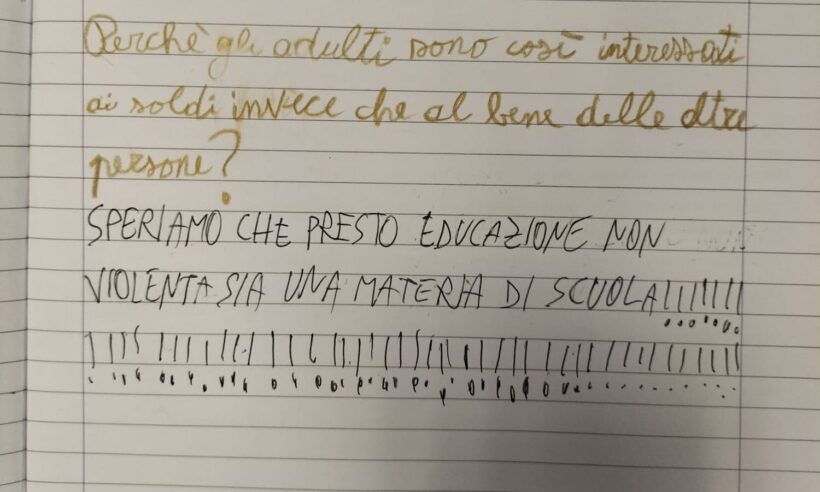 Perchè gli adulti sono così interessati
ai soldi invece che al bene delle altre
persone?
SPERIAMO CHE PRESTO EDUCAZIONE NON
VIOLENTA SIA UNA MATERIA DI SCUOLA!!!!!!!
!!!!!!!!!!!!!!!!!!!!!!!!!!!!!!!!!!!!!!!!